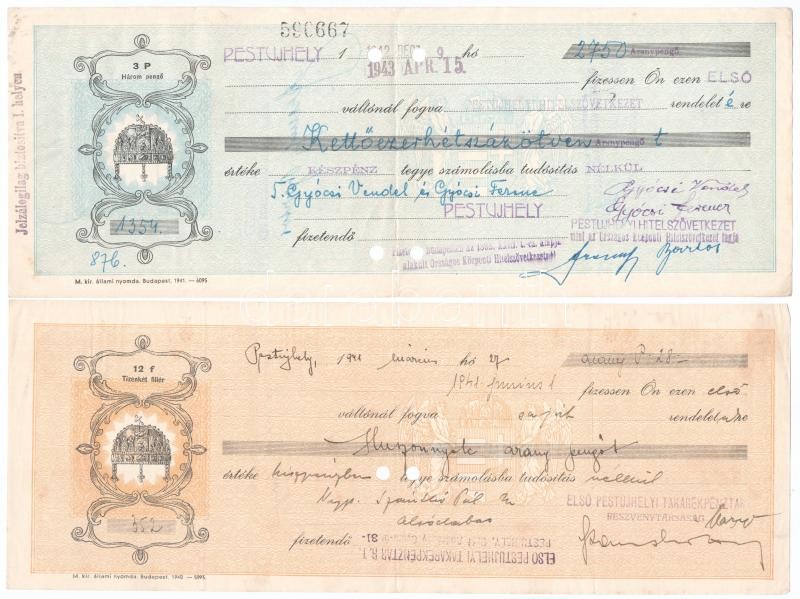 590667
PESTUJHELY 1 1942 DEC 9 hó 2750 Aranypengő
1943 APR. 15.
3 P
Három pengő
fizessen Ön ezen ELSŐ
váltónál fogva PESTUJHELYI HITELSZÖVETKEZET rendeleté re
Kettőezerhétszázötven Aranypengőt
értéke KÉSZPÉNZ tegye számolásba tudósítás NÉLKÜL
T. Gyócsi Vendel és Gyócsi Ferenc
Gyócsi Vendel
PESTUJHELY
Gyócsi Ferenc
PESTUJHELYI HITELSZÖVETKEZET
mint az Országos Központi Hitelszövetkezet tagja
fizetendő
alakult Országos Központi Hitelszövetkezetnél
1354.
876.
Jelzálogilag biztosítva 1. helyen
M. kir. állami nyomda. Budapest, 1941. — 6095
Pestujhely, 1941 március hó 27 arany P 28-
12 f
Tizenkét fillér
1941 junius 1 fizessen Ön ezen első
váltónál fogva saját rendeletünkre
Huszonnyolc arany pengőt
értéke készpénzben tegye számolásba tudósítás nélkül
Pál
Alsódabas
ELSŐ PESTUJHELYI TAKARÉKPÉNZTÁR
RÉSZVÉNYTÁRSASÁG
fizetendő
ELSŐ PESTUJHELYI TAKARÉKPÉNZTÁR R. T.
352
M. kir. állami nyomda. Budapest, 1940. — 5095